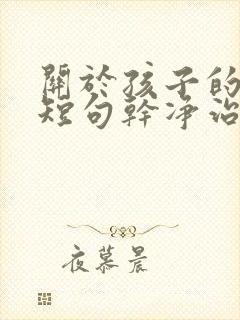 關於孩子的
短句幹凈治
夜慕晨